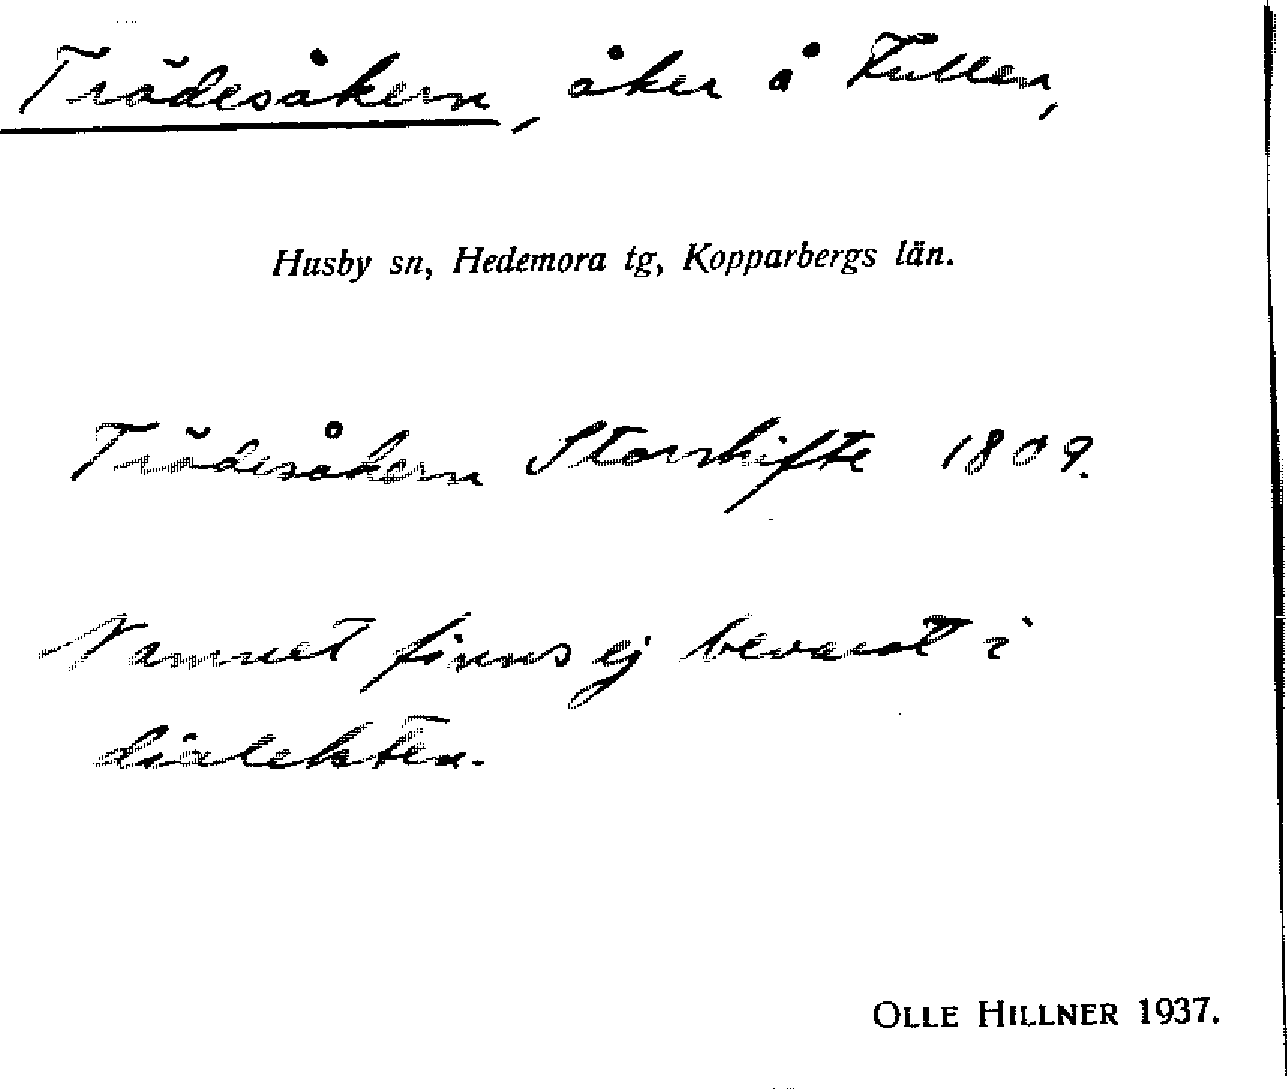 Trädesåkern, åker å Kullen,
Husby sn, Hedemora tg, Kopparbergs län.
Trädesåkern Storskifte 1809.
Namnet finns ej bevarat i
dialekten.
OLLE HILLNER 1937.